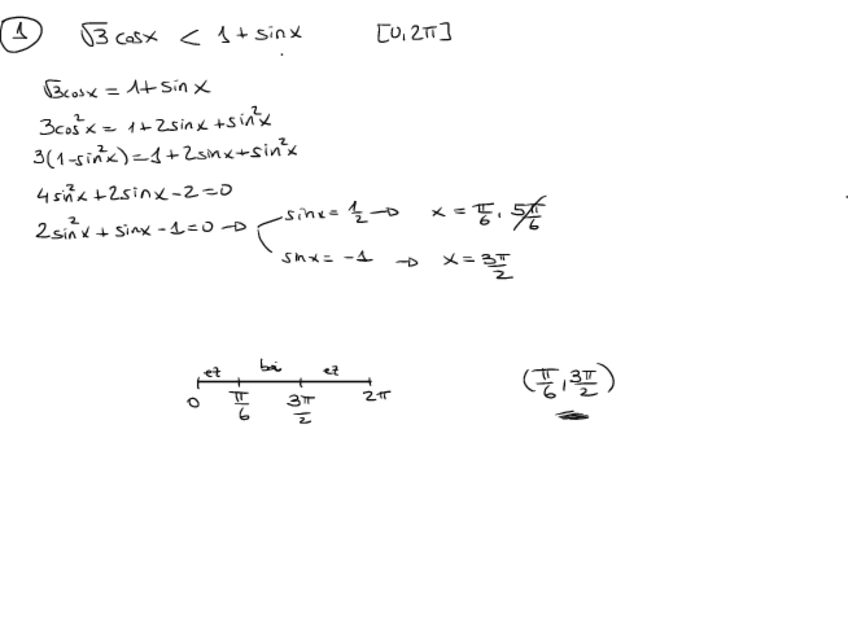 1 √3 cosx < 1 + sinx [0, 2π]
√3cosx = 1 + sinx
3cos²x = 1 + 2sinx + sin²x
3(1-sin²x) = 1 + 2sinx + sin²x
4sin²x + 2sinx - 2 = 0
2sin²x + sinx - 1 = 0 → sinx = 1/2 → x = π/6, 5π/6
sinx = -1 → x = 3π/2
ez bai ez
0 π/6 3π/2 2π (π/6, 3π/2)